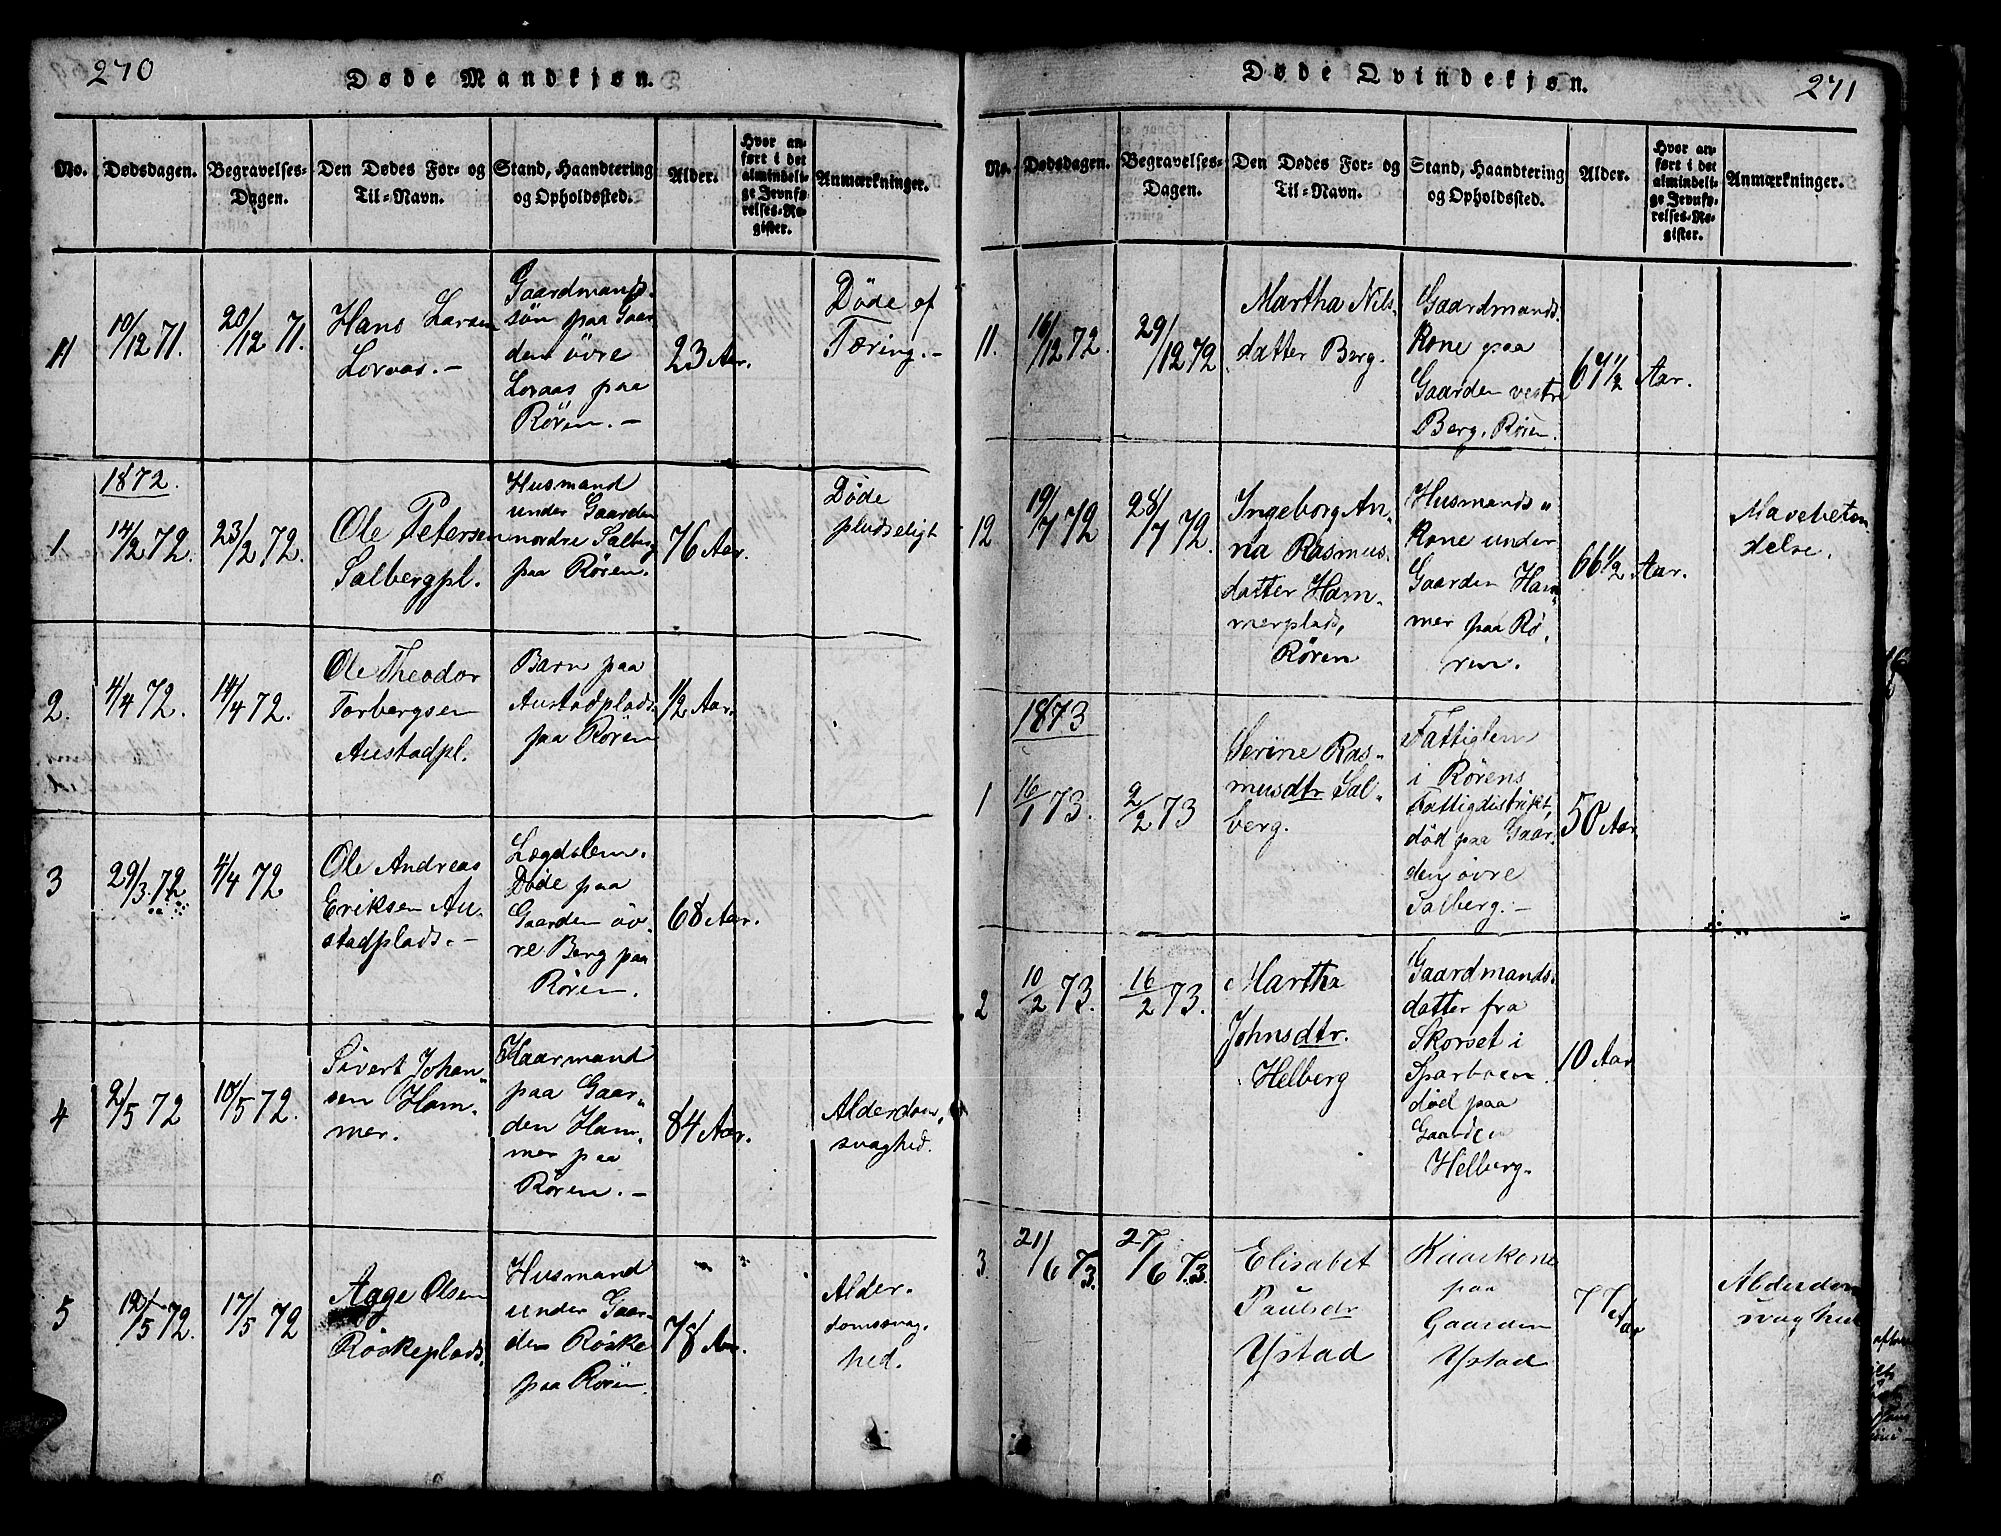 270
Døde Mandkjøn.
No.
Dødsdagen.
Begravelses-
Dagen.
Den Dødes For- og
Til-Navn.
Stand, Haandtering
og Opholdssted.
Alder.
Hvor an-
ført i det
almindeli-
ge Jevnfø-
relses-Re-
gister.
Anmærkninger.
11
19/12 71.
20/12 71.
Hans Larsen
Lorvas.-
Gaardmands-
søn paa Gaar
den øvre
Loraas paa
Røren.-
23 Aar.
Døde af
Tæring.-
1872.
1
14/2 72.
23/2 72.
Ole Petersen
Salbergpl.
Husmand
under Gaarden
nordre Salberg
paa Røren.
76 Aar.
Døde
pludseligt
2.
4/4 72.
14/4 72.
Ole Theodor
Torbergsen
Austadpl.
Barn paa
Austadplads
paa Røren
1/2 Aar.
3
29/3 72
4/4 72
Ole Andreas
Eriksen Au-
stadplads.-
Lægdslem.
Døde paa
Gaarden øv-
re Berg paa
Røren.
68 Aar.
4
2/5 72
10/5 72.
Sivert Johan-
sen Ham-
mer.
Kaarmand
paa Gaar-
den Ham-
mer paa
Røren.-
84 Aar.
Alderdoms-
svaghed.
5
12/5 72.
17/5 72
Aage Olsen
Røskeplads.
Husmand
under Gaar-
den Røske
paa Røren
78 Aar.
Alder-
domssvag-
hed.
Døde Qvindekjøn.
271
No.
Dødsdagen.
Begravelses-
Dagen.
Den Dødes For- og
Til-Navn.
Stand, Haandtering
og Opholdssted.
Alder.
Hvor an-
ført i det
almindeli-
ge Jevnfø-
relses-Re-
gister.
Anmærkninger.
11.
16/12 72.
29/12 72
Martha Nils-
datter Berg.
Gaardmands-
Kone paa
Gaarden vestre
Berg. Røren.
67 1/2 Aar.
12
19/7 72
28/7 72.
Ingeborg An-
na Rasmus-
datter Ham-
merplads,
Røren
Husmands-
Kone under
Gaarden Ham-
mer paa Rø-
ren.
66 1/2 Aar.
Mavebeten
delse.
1873
1
16/1 73.
2/2 73
Serine Ras-
musdtr Sal-
berg.
Fattiglem
i Rørens
Fattigdistrikt,
død paa Gaar-
den øvre
Salberg.-
50 Aar
2
10/2 73.
16/2 73.
Martha
Johnsdtr.
Helberg
Gaardmands-
datter fra
Skorset i
Sparboen.
død paa
Gaarden
Helberg.
10 Aar
3.
21/6 73.
27/6 73.
Elisabet
Paulsdr
Ystad
Kaarkone
paa
Gaarden
Ystad
77 Aar
Alderdom